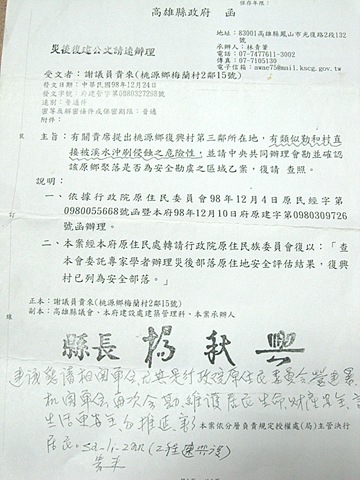 保存年限：
高雄縣政府　函
地址：83001高雄縣鳳山市光復路2段132號
承辦人：林青薯
電話：07-7477611-3002
傳真：07-7105130
電子信箱：awae75@mail.kscg.gov.tw
災後復建公文請速辦理
受文者：謝議員貴來(桃源鄉梅蘭村2鄰15號)
發文日期：中華民國98年12月24日
發文字號：府建管字第0980327268號
速別：普通件
密等及解密條件或保密期限：普通
附件：
主旨：有關貴席提出桃源鄉復興村第三鄰所在地，有類似勤和村直
接被溪水沖刷侵蝕之危險性，並請中央共同辦理會勘並確認
該原鄉聚落是否為安全勘虞之區域乙案，復請　查照。
說明：
一、依據行政院原住民委員會98年12月4日原民經字第
0980055668號函暨本府98年12月10日府原建字第0980309726
號函辦理。
二、本案經本府原住民處轉請行政院原住民族委員會復以：「查
本會委託專家學者辦理災後部落原住地安全評估結果，復興
村已列為安全部落。」
訂
正本：謝議員貴來(桃源鄉梅蘭村2鄰15號)
副本：高雄縣議會、本府建設處建築管理科、本案承辦人
線
縣長 楊秋興
建議懇請相關單位尤其是行政院原住民委員會
機關單位再次會勘維護居民生命財產安全
本案依分層負責規定授權處(局)主管決行
居民
貴來